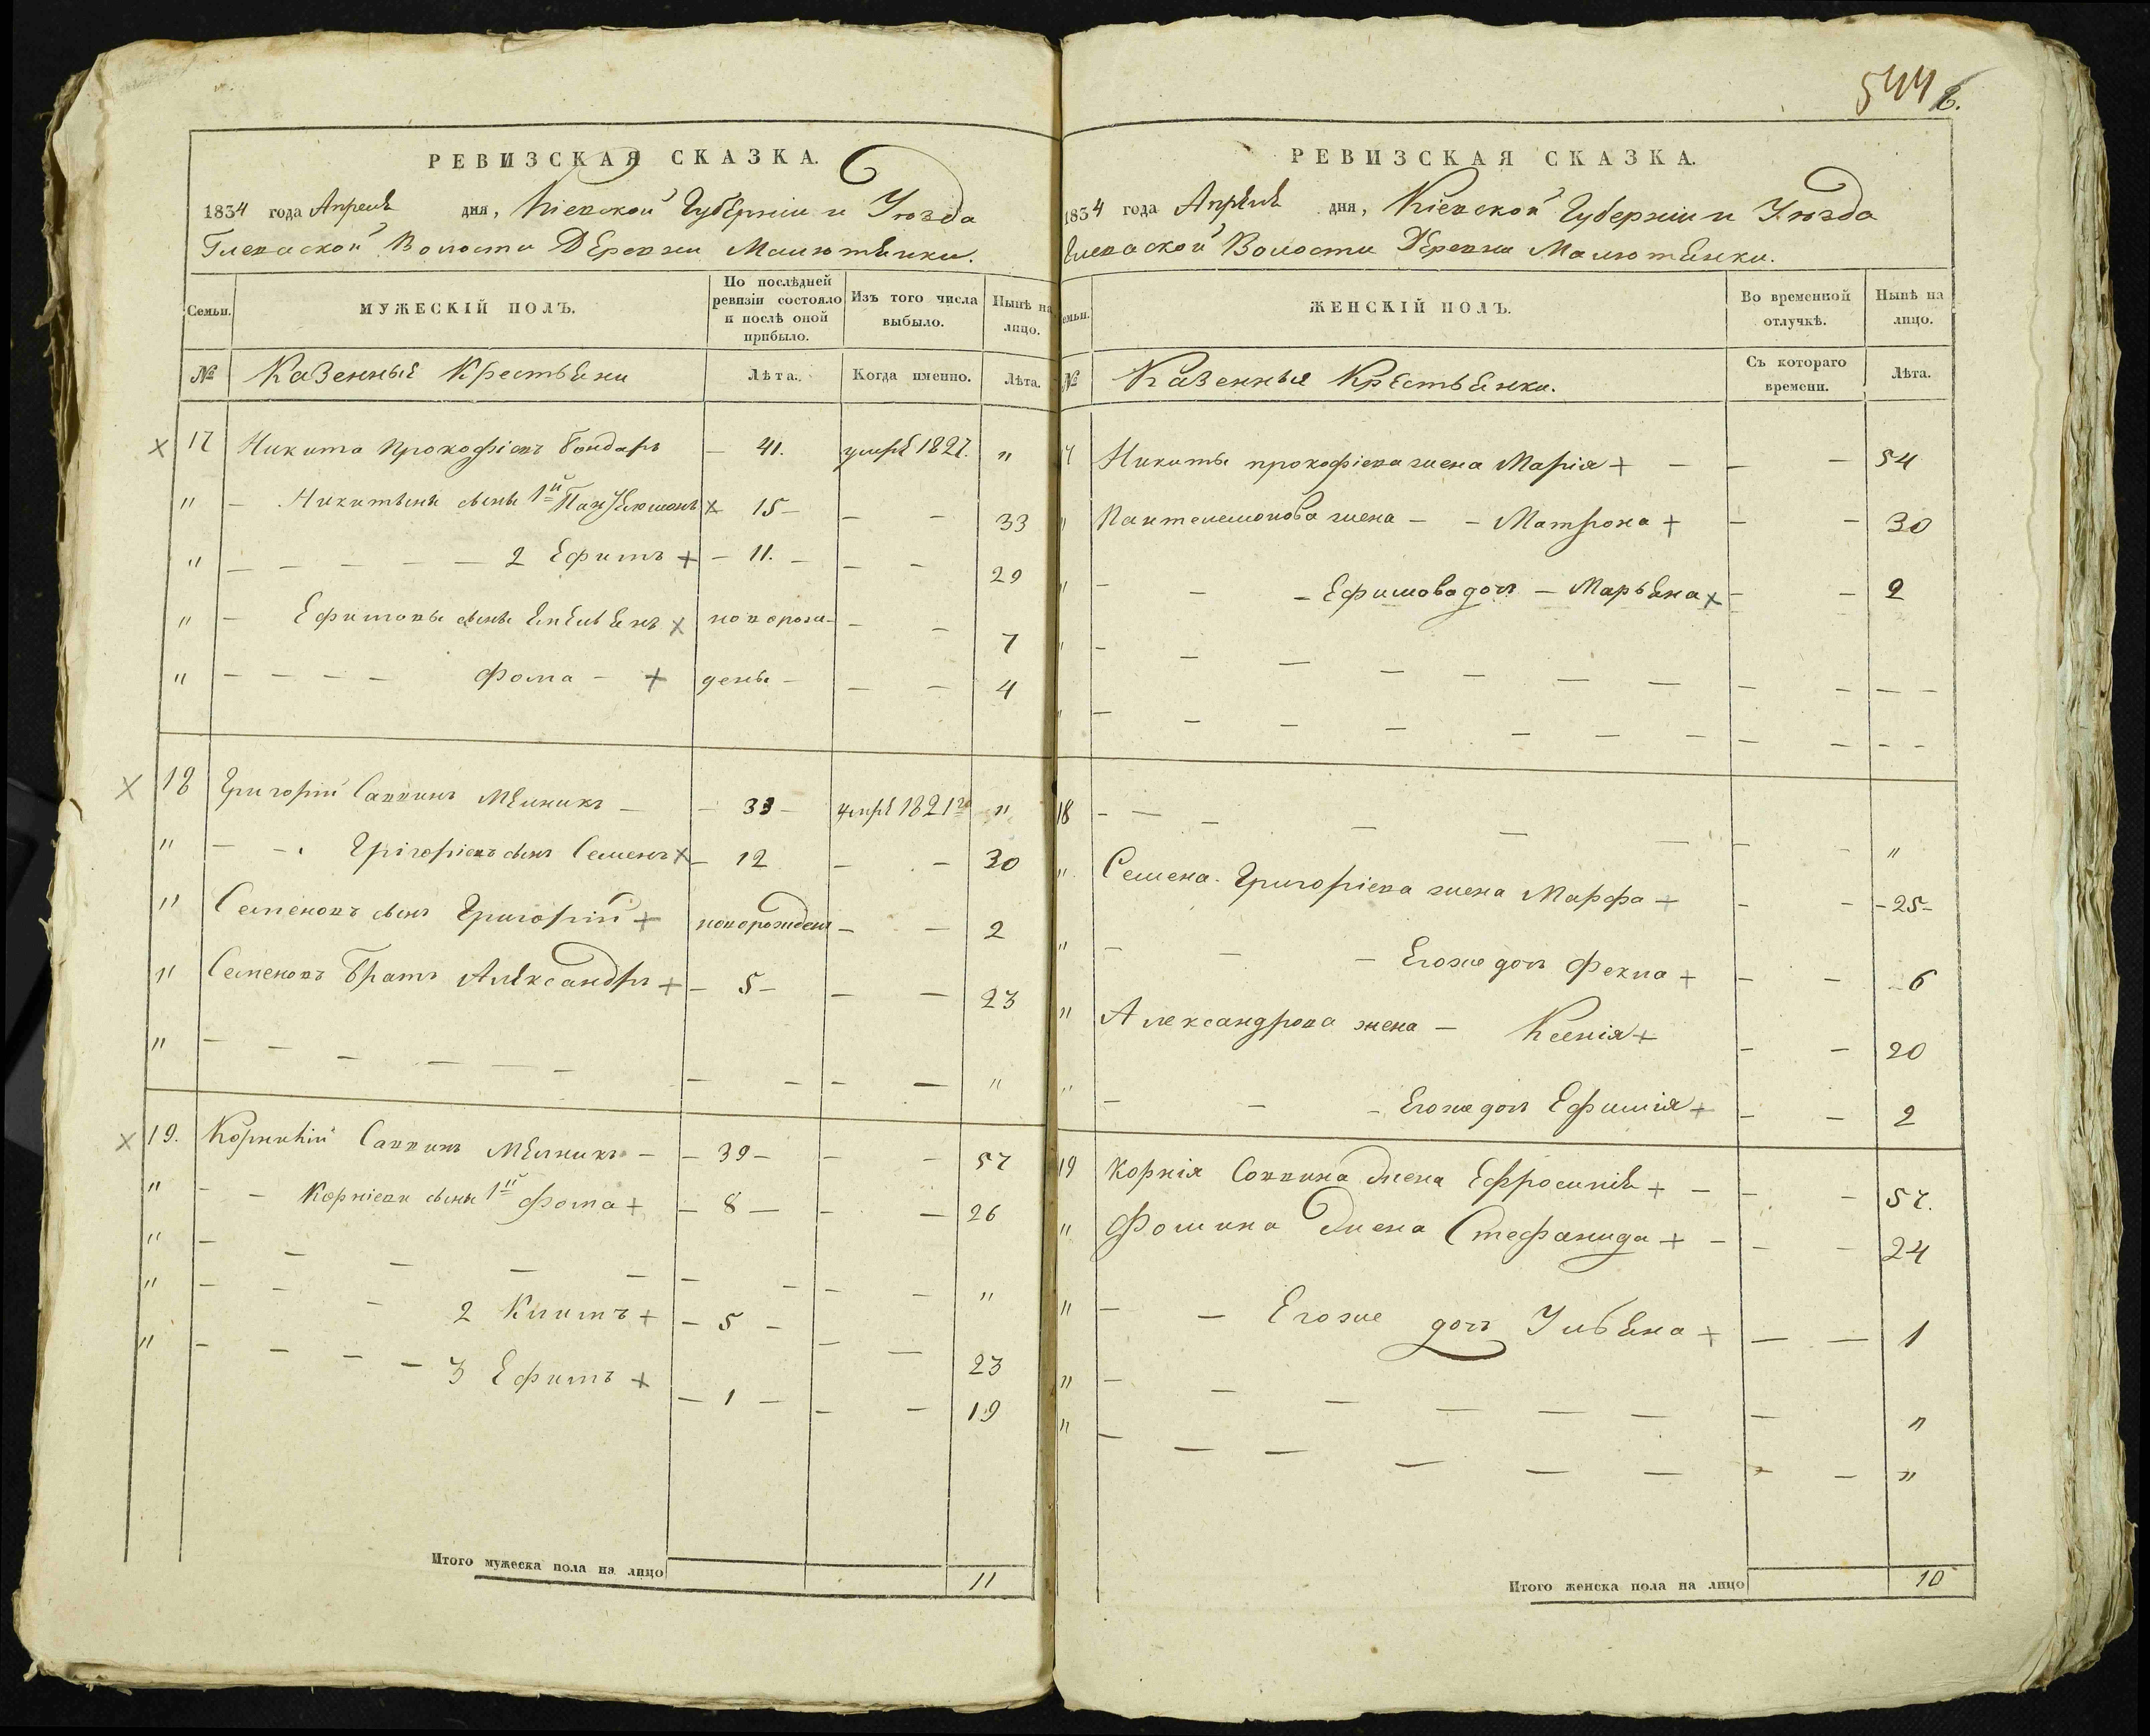 544 6.
РЕВИЗСКАЯ СКАЗКА.
1834 года Апреля дня, Кіевской Губерніи и Уезда
Глеваской Волости Деревни Малютянки.
Семьи. МУЖЕСКІЙ ПОЛЪ. По послѣдней ревизіи состояло и послѣ оной прибыло. Изъ того числа выбыло. Нынѣ на лицо.
№ Казенные Крестьяни Лѣта. Когда именно. Лѣта.
17 Никита Прокофіевъ Бондарь — 41. умре 1827. "
" — Никитыны сыны 1й Пантелюмонъ — 15 — — — 33
" — — — — — 2 Ефимъ — 11. — — — 29
" — Ефимовы сыны Емельянъ новорож- — — 7
" — — — — Фома — дены — — — 4
18 Григорій Саввинъ Мельникъ — — 33 — умре 1821го "
" — — Григоріевъ сынъ Семенъ — 12 — — 30
" Семеновъ сынъ Григорій новорожден — — 2
" Семеновъ Братъ Александръ — 5 — — — 23
" — — — — — — — — — — "
19. Корнилій Саввинъ Мельникъ — — 39 — — — 57
" — — Корніевы сыны 1й Фома — 8 — — — 26
" — — — — — — — — — "
" — — — 2 Климъ — 5 — — — 23
" — — — — 3 Ефимъ — 1 — — — 19
Итого мужеска пола на лицо 11
РЕВИЗСКАЯ СКАЗКА.
1834 года Апреля дня, Кіевской Губерніи и Уезда
Глеваской Волости Деревни Малютянки.
Семьи. ЖЕНСКІЙ ПОЛЪ. Во временной отлучкѣ. Нынѣ на лицо.
№ Казенные Крестьянки. Съ котораго времени. Лѣта.
Никиты Прокофіева жена Марія — — — 54
" Пантелемонова жена — — Матрона — — 30
" — — — Ефимова доч — Марьяна — — 2
" — — — — — — — — — — —
" — — — — — — — — — — —
18 — — — — — — — — "
" Семена Григоріева жена Марфа — — 25 —
" — — — Егоже доч Фекла — — 6
" Александрова жена — Ксенія — — 20
" — — — Егоже доч Ефимія — — 2
19 Корнія Саввина жена Ефросинія — — — 57.
" Фомина жена Стефанида — — — 24
" — — Егоже доч Ульяна — — 1
" — — — — — — — "
" — — — — — — — — "
Итого женска пола на лицо 10